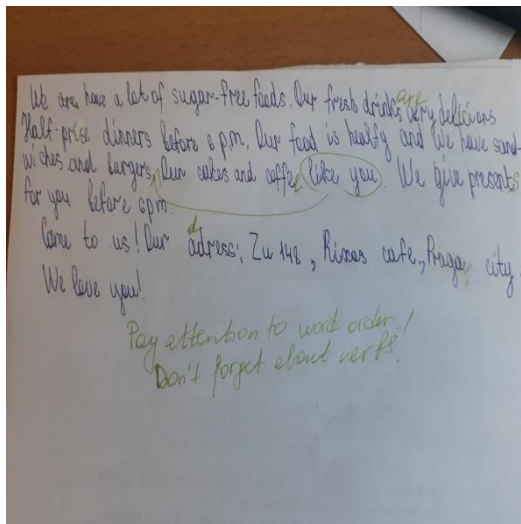 We are have a lot of sugar-free foods. Our fresh drinks are very delicious
Half-price dinners before 6 p.m. Our food is healty and we have sand-
wiches and burgers, Our cakes and coffe like you. We give presents
for you before 6pm.
Come to us! Our adress; Zu 148, Rixos cafe, Praga city.
We love you!
Pay attention to word order!
Don't forget about verbs.